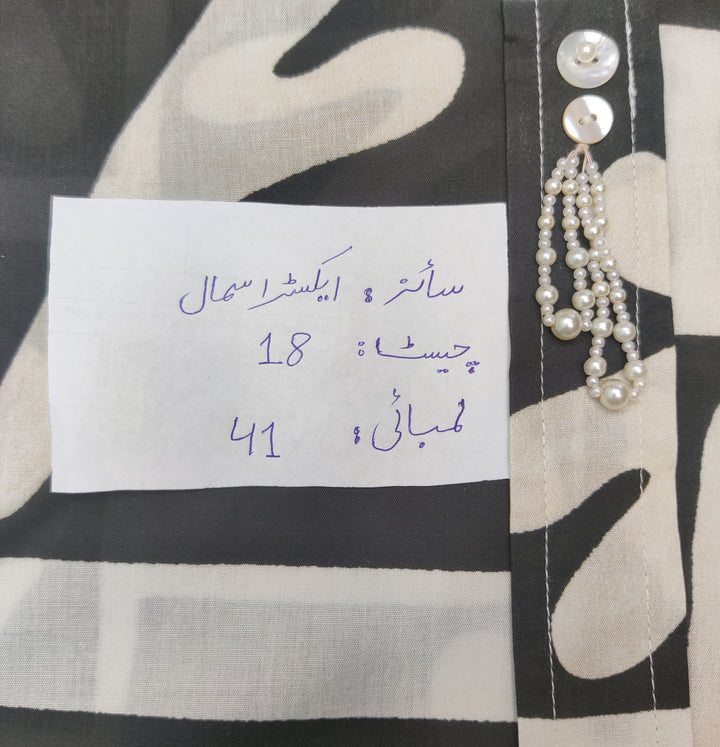 سائز: ایکسٹرا سمال
چیسٹ: 18
لمبائی: 41